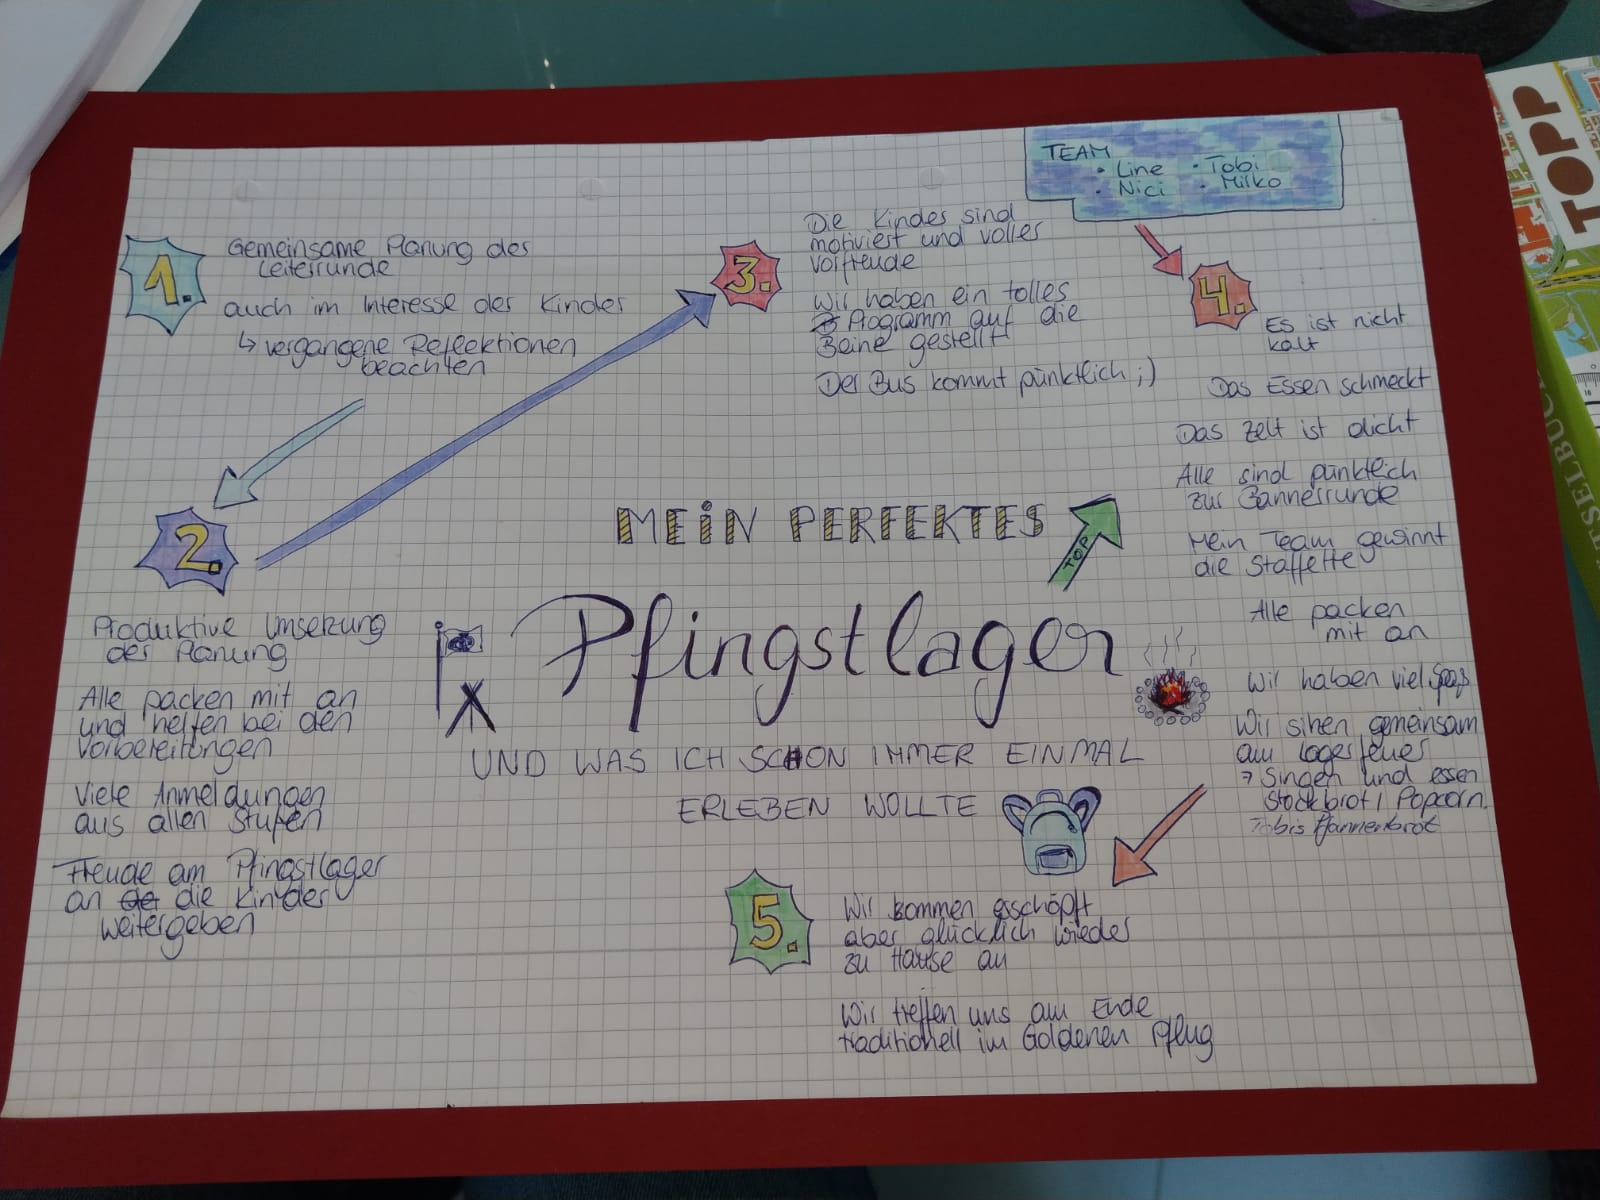 TEAM
• Line • Tobi
• Nici • Milko
1.
Gemeinsame Planung der
Leiterrunde
auch im Interesse der Kinder
↳ vergangene Reflektionen
beachten
2.
Produktive Umsetzung
der Planung
Alle packen mit an
und helfen bei den
Vorbereitungen
Viele Anmeldungen
aus allen Stufen
Freude am Pfingstlager
an die Kinder
weitergeben
3.
Die Kinder sind
motiviert und voller
Vorfreude
Wir haben ein tolles
Programm auf die
Beine gestellt
Der Bus kommt pünktlich ;)
4.
Es ist nicht
kalt
Das Essen schmeckt
Das Zelt ist dicht
Alle sind pünktlich
zur Bannerrunde
Mein Team gewinnt
die Staffette
Alle packen
mit an
Wir haben viel Spaß
Wir sitzen gemeinsam
am Lagerfeuer
→ Singen und essen
Stockbrot / Popcorn,
Tobis Pfannenbrot
MEIN PERFEKTES
TOP
Pfingstlager
UND WAS ICH SCHON IMMER EINMAL
ERLEBEN WOLLTE
5.
Wir kommen erschöpft
aber glücklich wieder
zu Hause an
Wir treffen uns am Ende
traditionell im Goldenen Pflug
TOPP